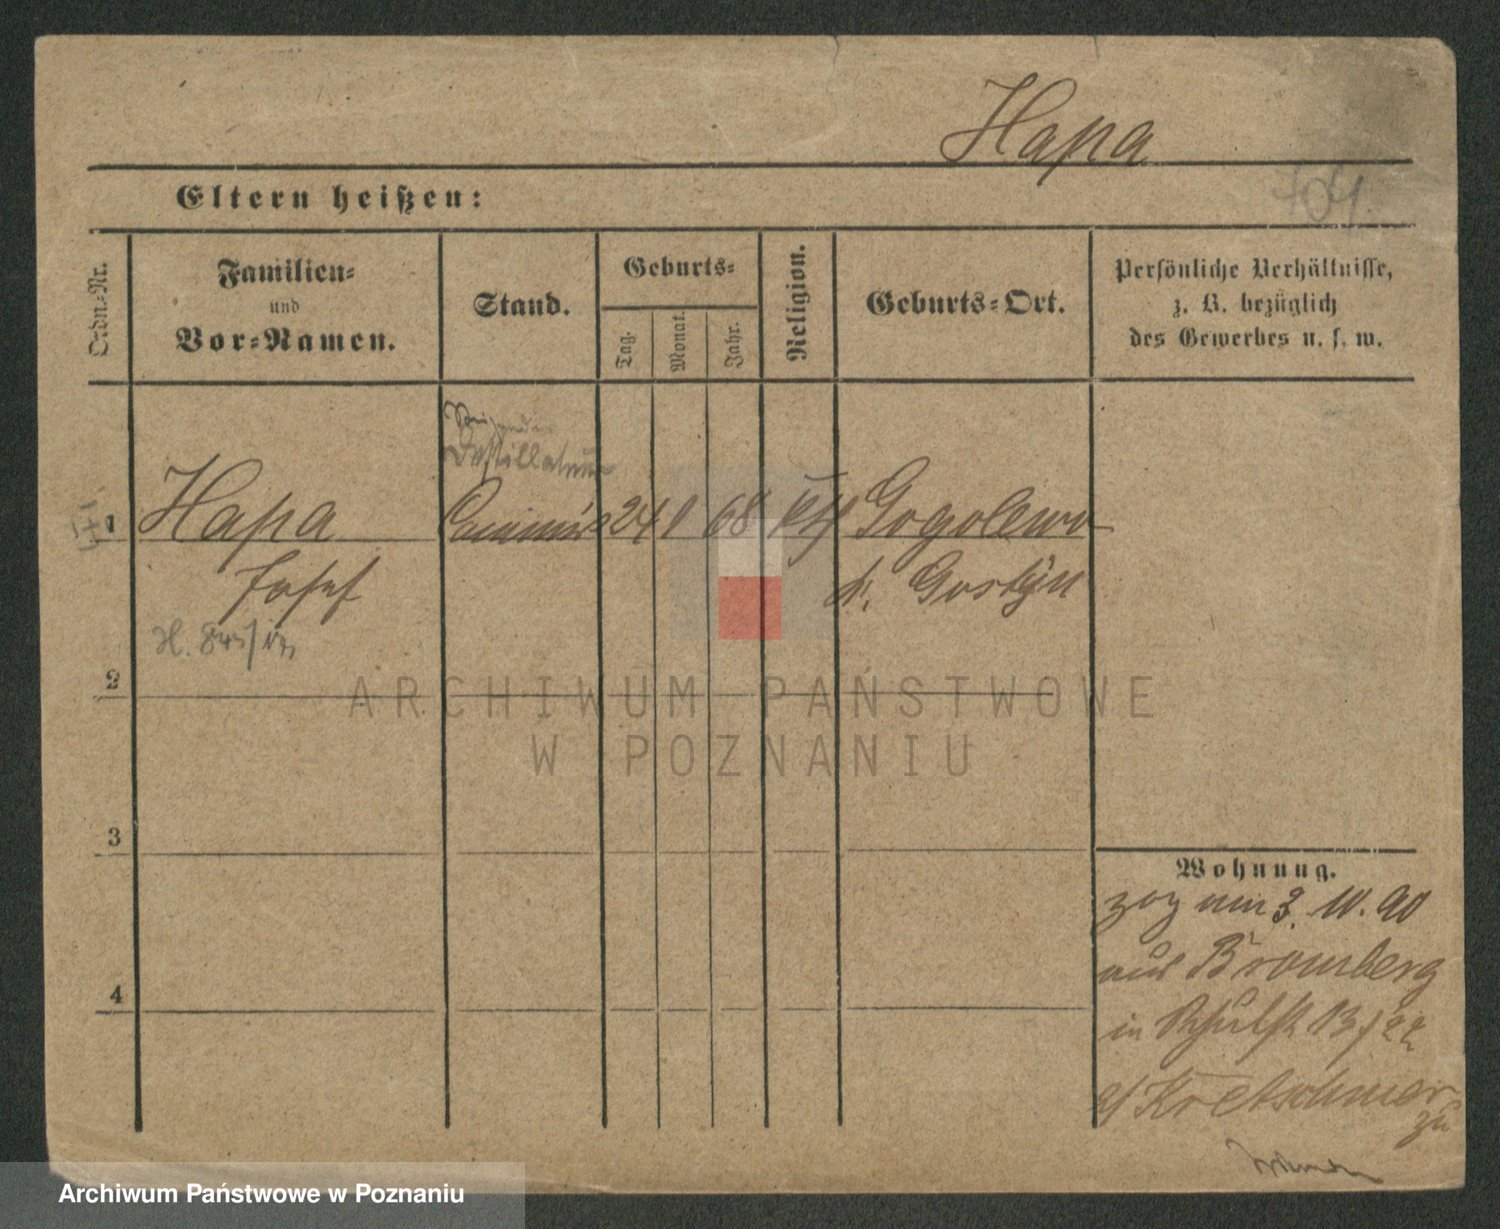 Hapa
704.
Eltern heißen:
Ordn.-Nr.
Familien-
und
Vor-Namen.
Stand.
Geburts-
Tag.
Monat.
Jahr.
Religion.
Geburts-Ort.
Persönliche Verhältnisse,
z. B. bezüglich
des Gewerbes u. s. w.
Destillateur
1 Hapa Commis 24 1 68 kth Gogolewo
Josef
Gostÿn
2
3
4
Wohnung.
zog am 3. 10. 90
aus Bromberg
in Schulstr 13/22
Kretschmer
zu
ARCHIWUM PAŃSTWOWE
W POZNANIU
Archiwum Państwowe w Poznaniu